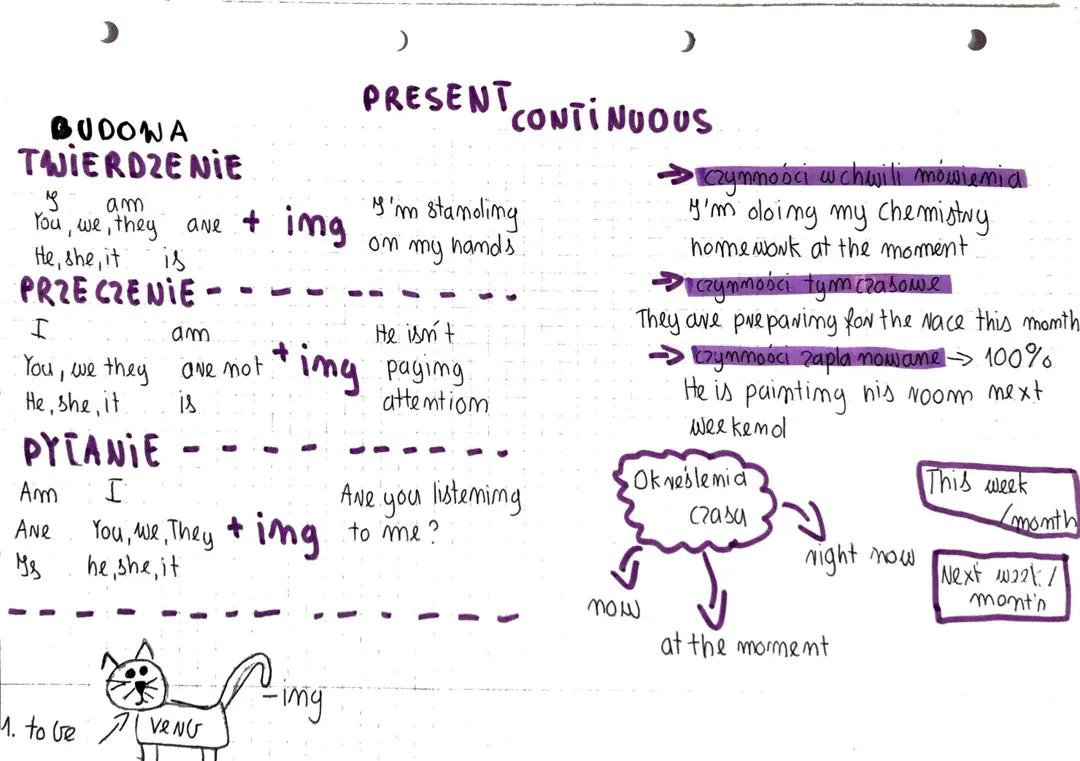 PRESENT CONTINUOUS
BUDOWA
TWIERDZENIE
I am
You, we, they are + ing
He, she, it is
I'm standing
on my hands
PRZECZENIE
I am
You, we they are not + ing
He, she, it is
He isn't
paying
attention
PYTANIE
Am I
Are You, we, They + ing
Is he, she, it
Are you listening
to me?
1. to be
VERB
-ing
czynności w chwili mówienia
I'm doing my chemistry
homework at the moment
czynności tymczasowe
They are preparing for the race this month
czynności zaplanowane → 100%
He is painting his room next
weekend
Określenia
czasu
now
at the moment
right now
This week
/month
Next week/
month